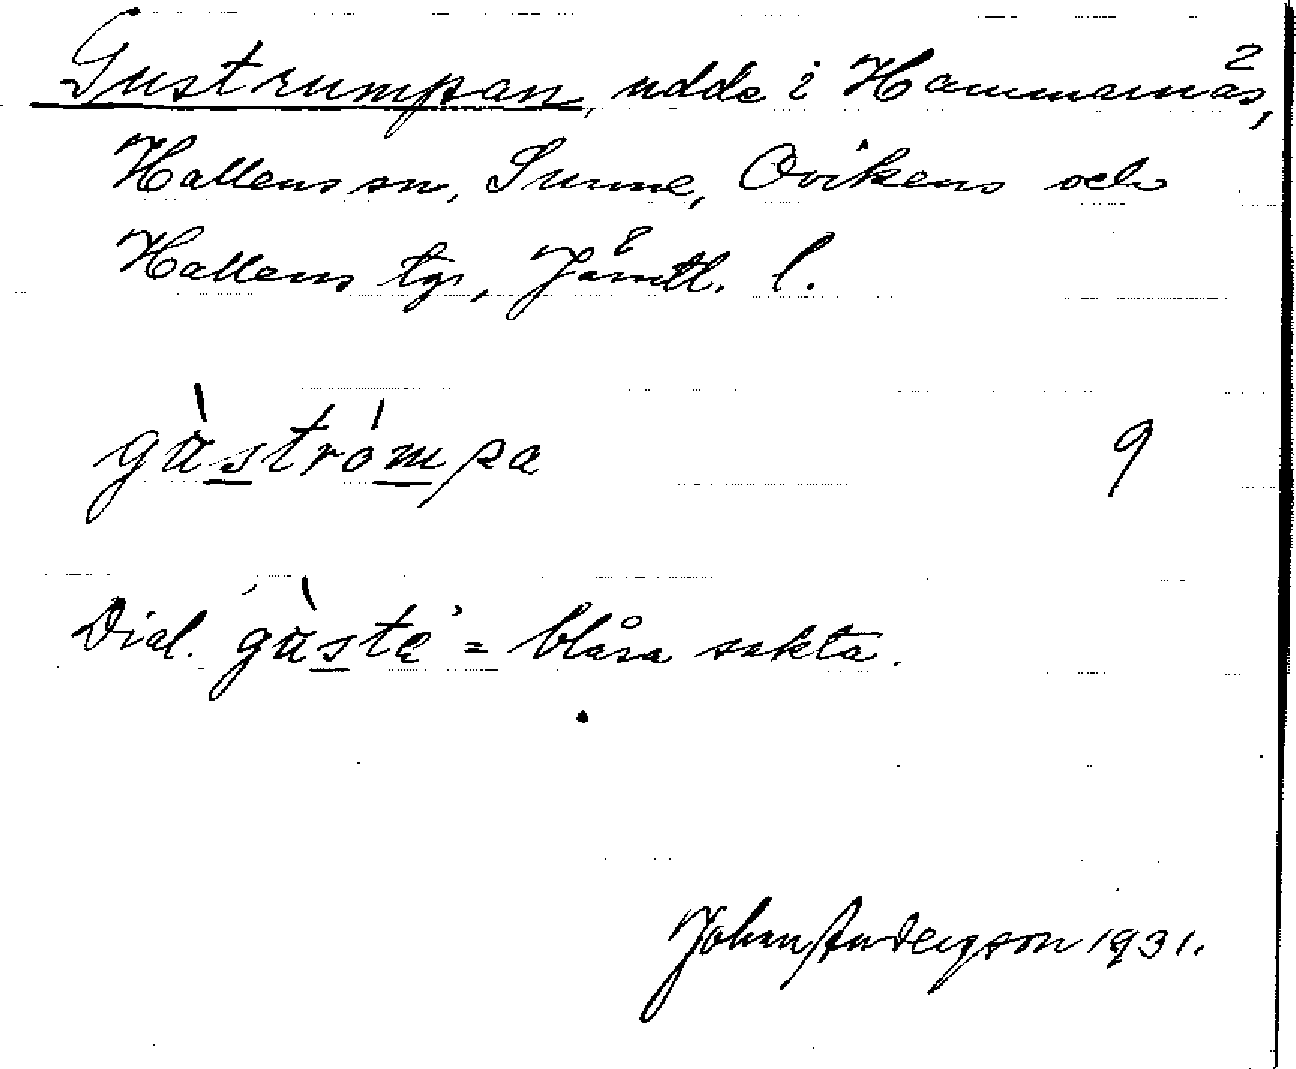 Gustrumpan, udde i Hammarnäs, 2
Hallens sn, Sunne, Ovikens och
Hallens tgr, Jämtl. l.
gùstrómpa 9
Dial. gùsta = blåsa sakta.
Johan Andersson 1931.